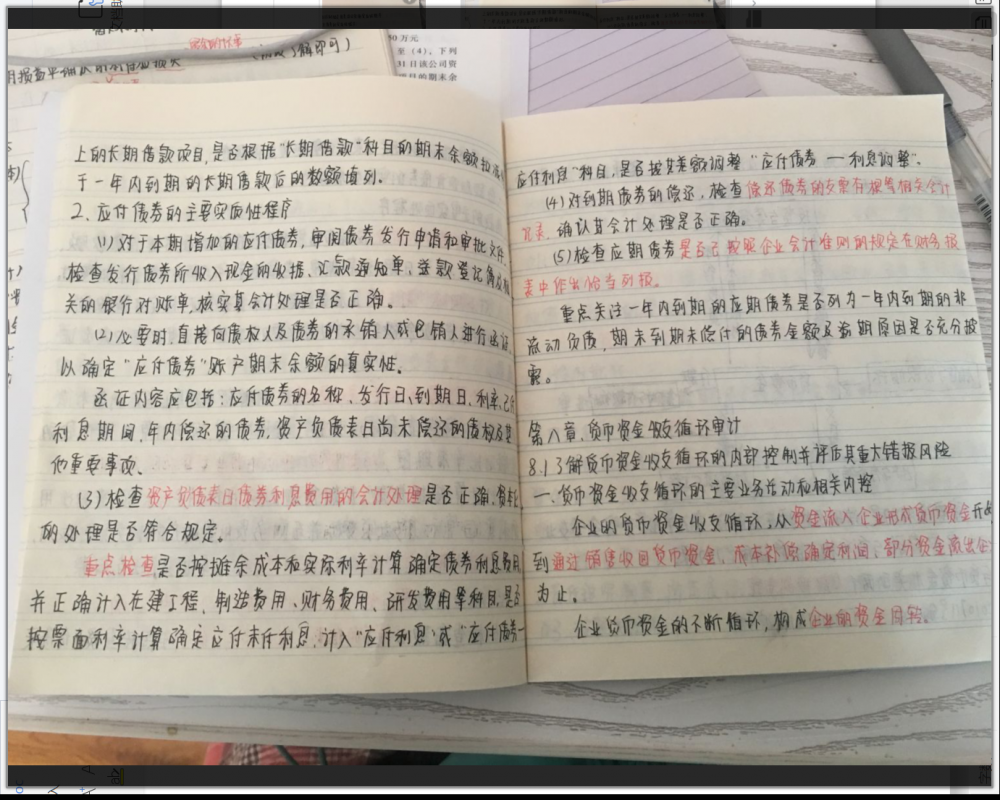 (需要了解即可)
50万元
至（4），下列
31日该公司资
目的期末余
上的长期借款项目,是否根据“长期借款”科目的期末余额扣减
于一年内到期的长期借款后的数额填列.
2.应付债券的主要实质性程序
(1)对于本期增加的应付债券,审阅债券发行申请和审批文件,
检查发行债券所收入现金的收据、汇款通知单、送款登记簿及相
关的银行对账单,核实其会计处理是否正确。
(2)必要时,直接向债权人及债券的承销人或包销人进行函证
以确定“应付债券”账户期末余额的真实性.
函证内容应包括:应付债券的名称、发行日、到期日、利率、已付
利息期间、年内偿还的债券,资产负债表日尚未偿还的债权及其
他重要事项、
(3)检查资产负债表日债券利息费用的会计处理是否正确,资本化
的处理是否符合规定.
重点检查是否按摊余成本和实际利率计算确定债券利息费用
并正确计入在建工程、制造费用、财务费用、研发费用等科目,是否
按票面利率计算确定应付未付利息,计入“应付利息”或“应付债券一
应付利息”科目,是否按其差额调整“应付债券一利息调整”.
(4)对到期债券的偿还,检查偿还债券的支票存根等相关会计
记录.确认其会计处理是否正确。
(5)检查应期债券是否已按照企业会计准则的规定在财务报
表中作出恰当列报.
重点关注一年内到期的应期债券是否列为一年内到期的非
流动负债,期末到期未偿付的债券金额及逾期原因是否充分披
露。
第八章,货币资金收支循环审计
8.1了解货币资金收支循环的内部控制并评估其重大错报风险
一.货币资金收支循环的主要业务活动和相关内控
企业的货币资金收支循环,从资金流入企业形成货币资金开始
到通过销售收回货币资金、成本补偿确定利润、部分资金流出企业
为止.
企业货币资金的不断循环,构成企业的资金周转.